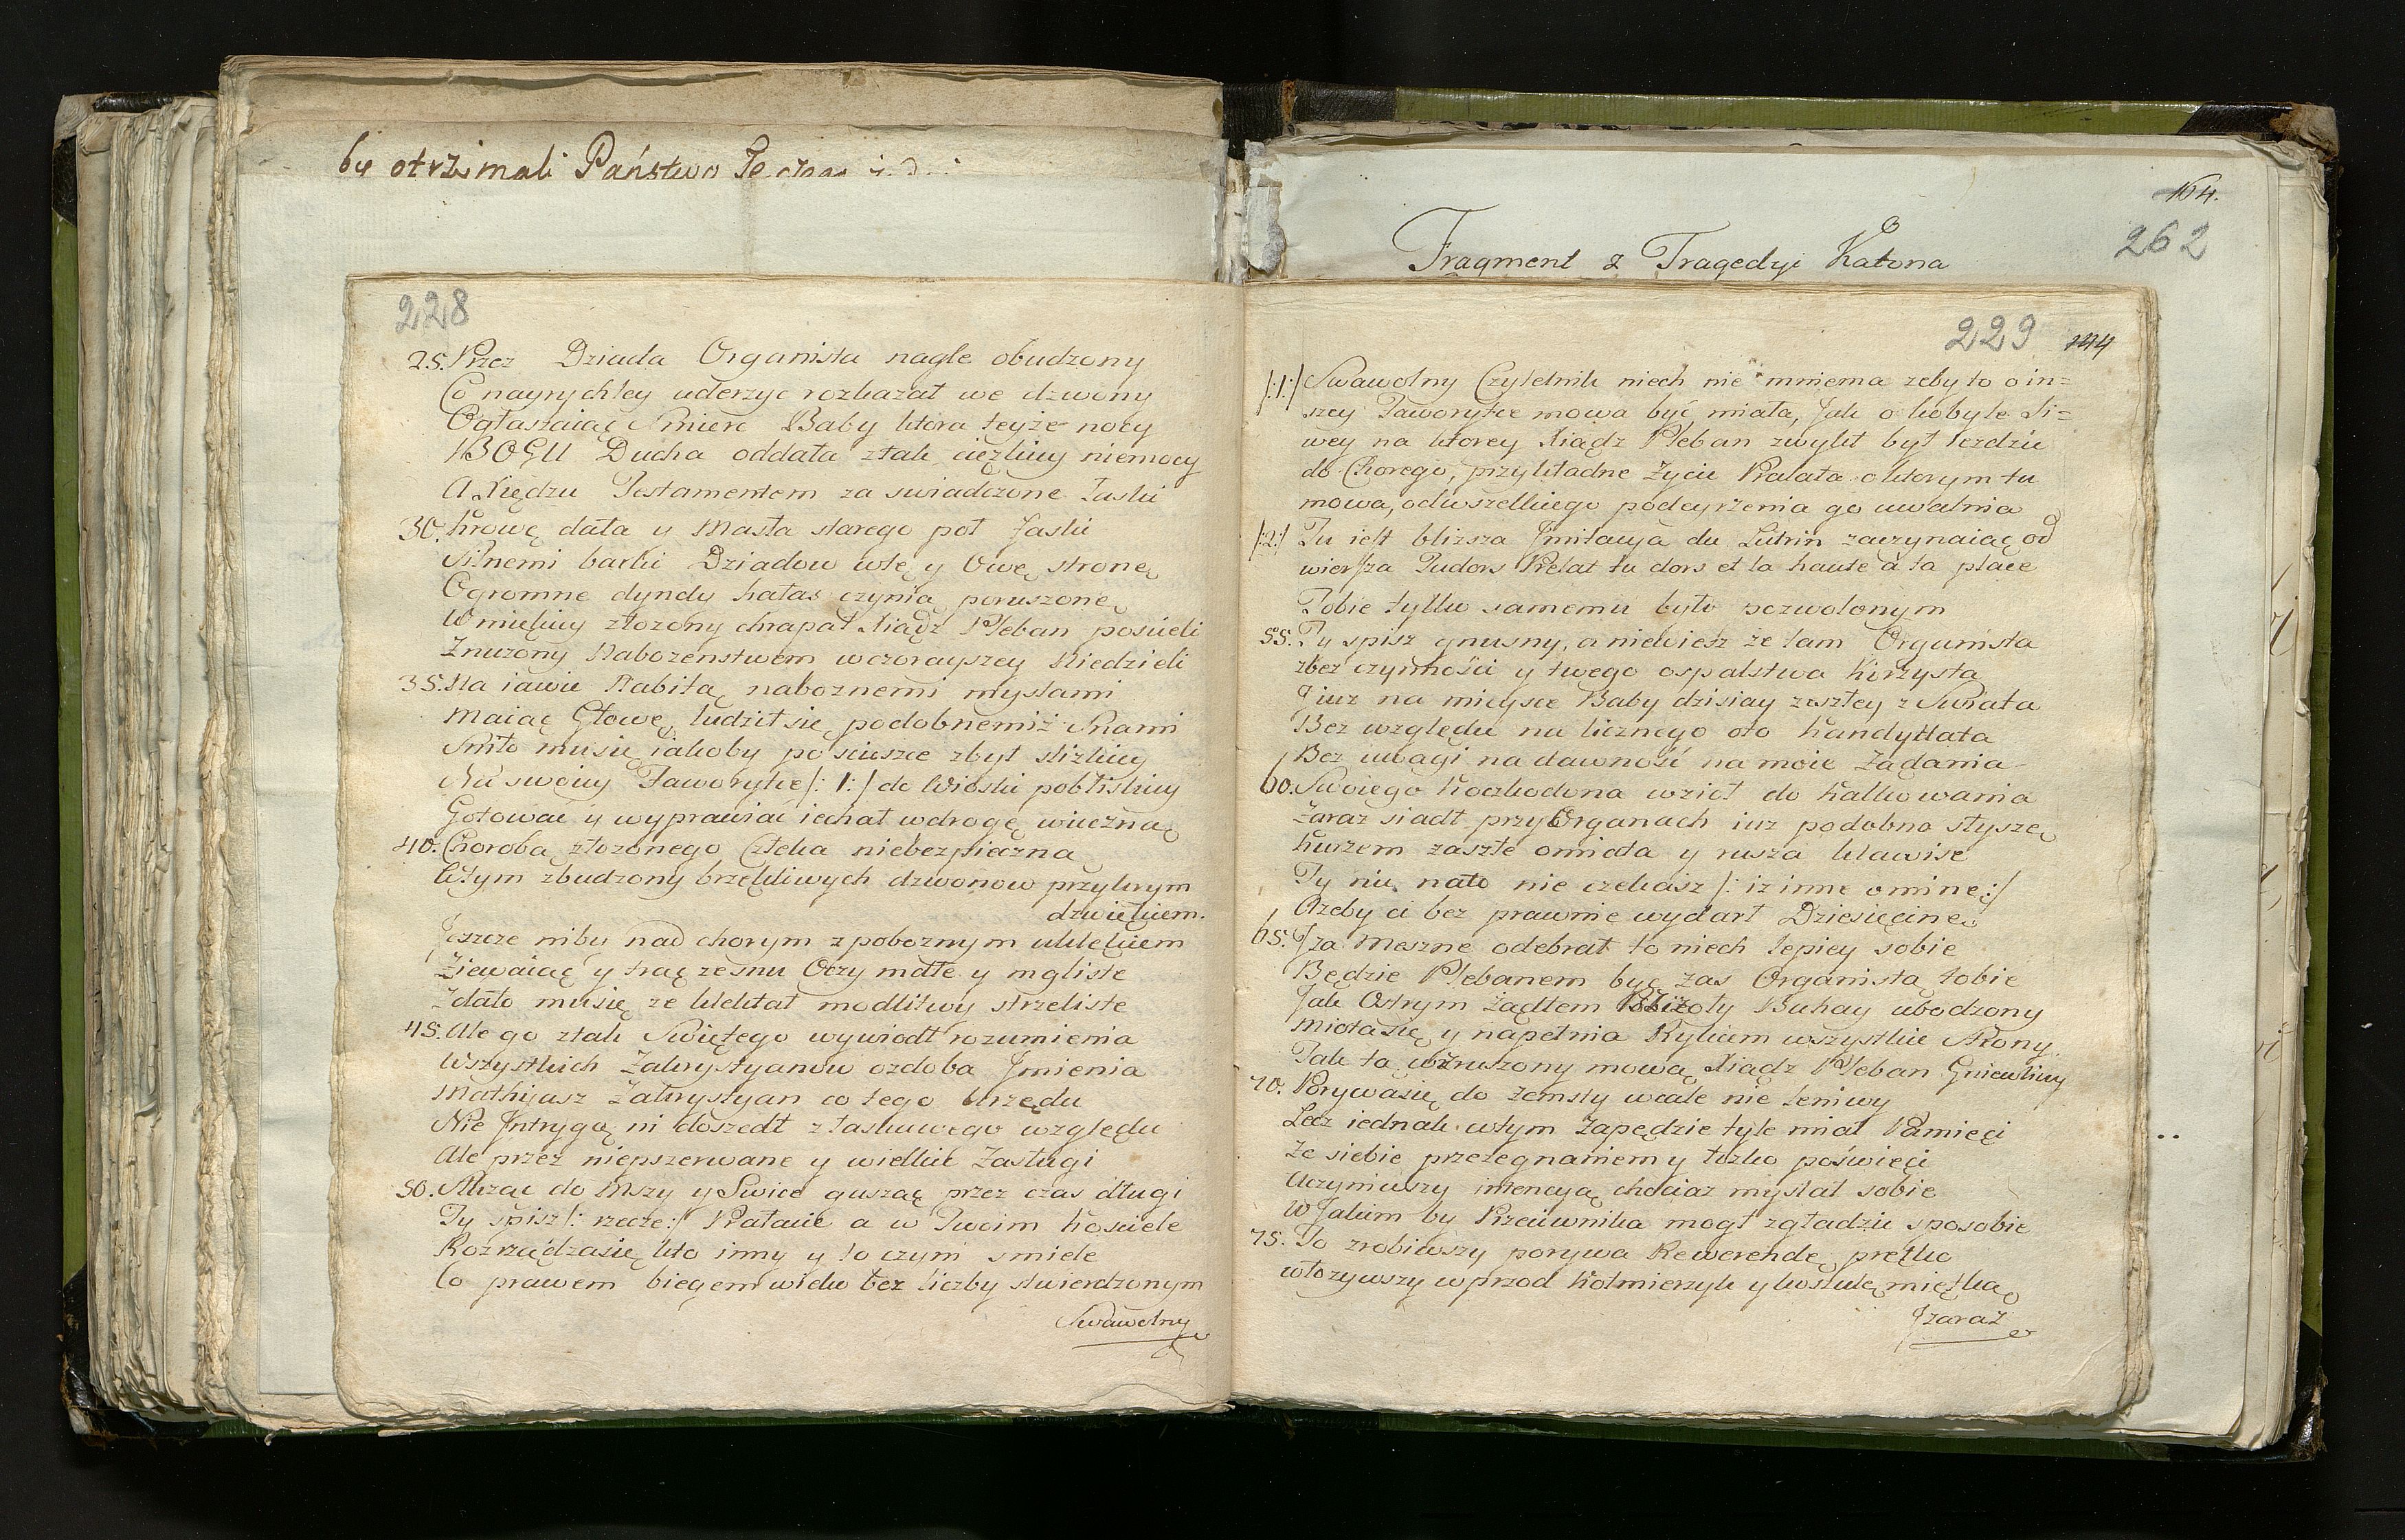 by otrzimali Państwo
228
25. Przez Dziada Organista nagle obudzony
Co nayrychley uderzyc rozkazał we dzwony
Ogłaszaiąc Smierc Baby ktora teyże nocy
BOGU Ducha oddała z tak cięzkiey niemocy
A Xiędzu Testamentem za swiadczone Łaski
30. Krowę dała y Masła starego poł faski
Silnemi barki Dziadow wtę y Owę stronę
Ogromne dyndy hałas czynią poruszone
W miękiey złozony chrapał Xiądz Pleban poscieli
Znuzony Nabozenstwem wczorayszey Niedzieli
35. Na iawie Nabitą naboznemi myslami
Maiąc Głowę, łudził się podobnemiż Snami
Sniło musię iakoby po scieszce zbyt slizkiey
Na swoiey Faworytce /: 1:/ do Wioski pobliskiey
Gotowac y wyprawiać iechał wdrogę wieczną
40. Chorobą złozonego Człeka niebezpieczną
Wtym zbudzony brzękliwych dzwonow przykrym
dzwiękiem.
Jeszcze niby nad chorym z poboznym uklękiem
Ziewaiąc y trąc ze snu Oczy mdłe y mgliste
Zdało musię ze klektał modlitwy strzeliste
45. Ale go z tak Swiętego wywiodł rozumienia
Wszystkich Zakrystyanow ozdoba Jmienia
Mathyasz Zakrystyan co tego Urzędu
Nie Jntrygą ni doszedł z łaskawego względu
Ale przez nieprzerwane y wielkie Zasługi
50. Słuząc do Mszy y Swice gasząc przez czas długi
Ty spisz /: rzecze:/ Prałacie a w Twoim Kosciele
Rozrządzasię kto inny y to czyni smiele
Co prawem biegem wieku bez liczby stwierdzonym
Swawolny
164.
262
Fragment z Tragedyi Katona
229 144
/:1:/ Swawolny Czytelnik niech nie mniema zeby to o in=
szey Faworytce mowa być miała, Jak o kobyle Si=
wey na ktorey Xiądz Pleban zwykł był iezdzic
do Chorego, przykładne Zycie Prałata o ktorym tu
mowa, od wszelkiego podeyrzenia go uwalnia
/:2:/ Tu iest blizsza Jmitacya du Lutrin zaczynaiąc od
wiersza Tudors Prelat tu dors et la haute à ta place
Tobie tylko samemu było pozwolonym
55. Ty spisz gnusny, a niewiesz że tam Organista
zbez czynności y twego ospalstwa korzysta
I iuz na mieysce Baby dzisiay zeszłey z Swiata
Bez względu na licznego oto Kandydata
Bez uwagi na dawność na moie Ządania
60. Swoiego Kozkodona wziął do Kalkowania
Zaraz siadł przy Organach iuz podobno słyszę
Kurzem zaszłe omiata y rusza klawisze
Ty nic nato nie czekasz /: iz inne ominę:/
Azeby ci bez prawnie wydarł Dziesięcinę
65. I za Meszne odebrał to niech lepiey sobie
Będzie Plebanem być zas Organistą tobie
Jak Ostrym Ządłem Pszczoły Buhay ubodzony
Miota się y napełnia Rykiem wszystkie Strony
Tak tą wzruszony mową Xiądz Pleban Gniewliwy
70. Porywasię do Zemsty wcale nie leniwy
Lecz iednak wtym Zapędzie tyle miał Pamięci
Że siebie przezegnaniem y łozko poświęci
Uczyniwszy intencyą chociaz myslał sobie
W Jakim by Przeciwnika mogł zgładzic sposobie
75. To zrobiwszy porywa Rewerendę prętko
włozywszy wprzod Kołnierzyk y koszulę mięlką
Jzaraz